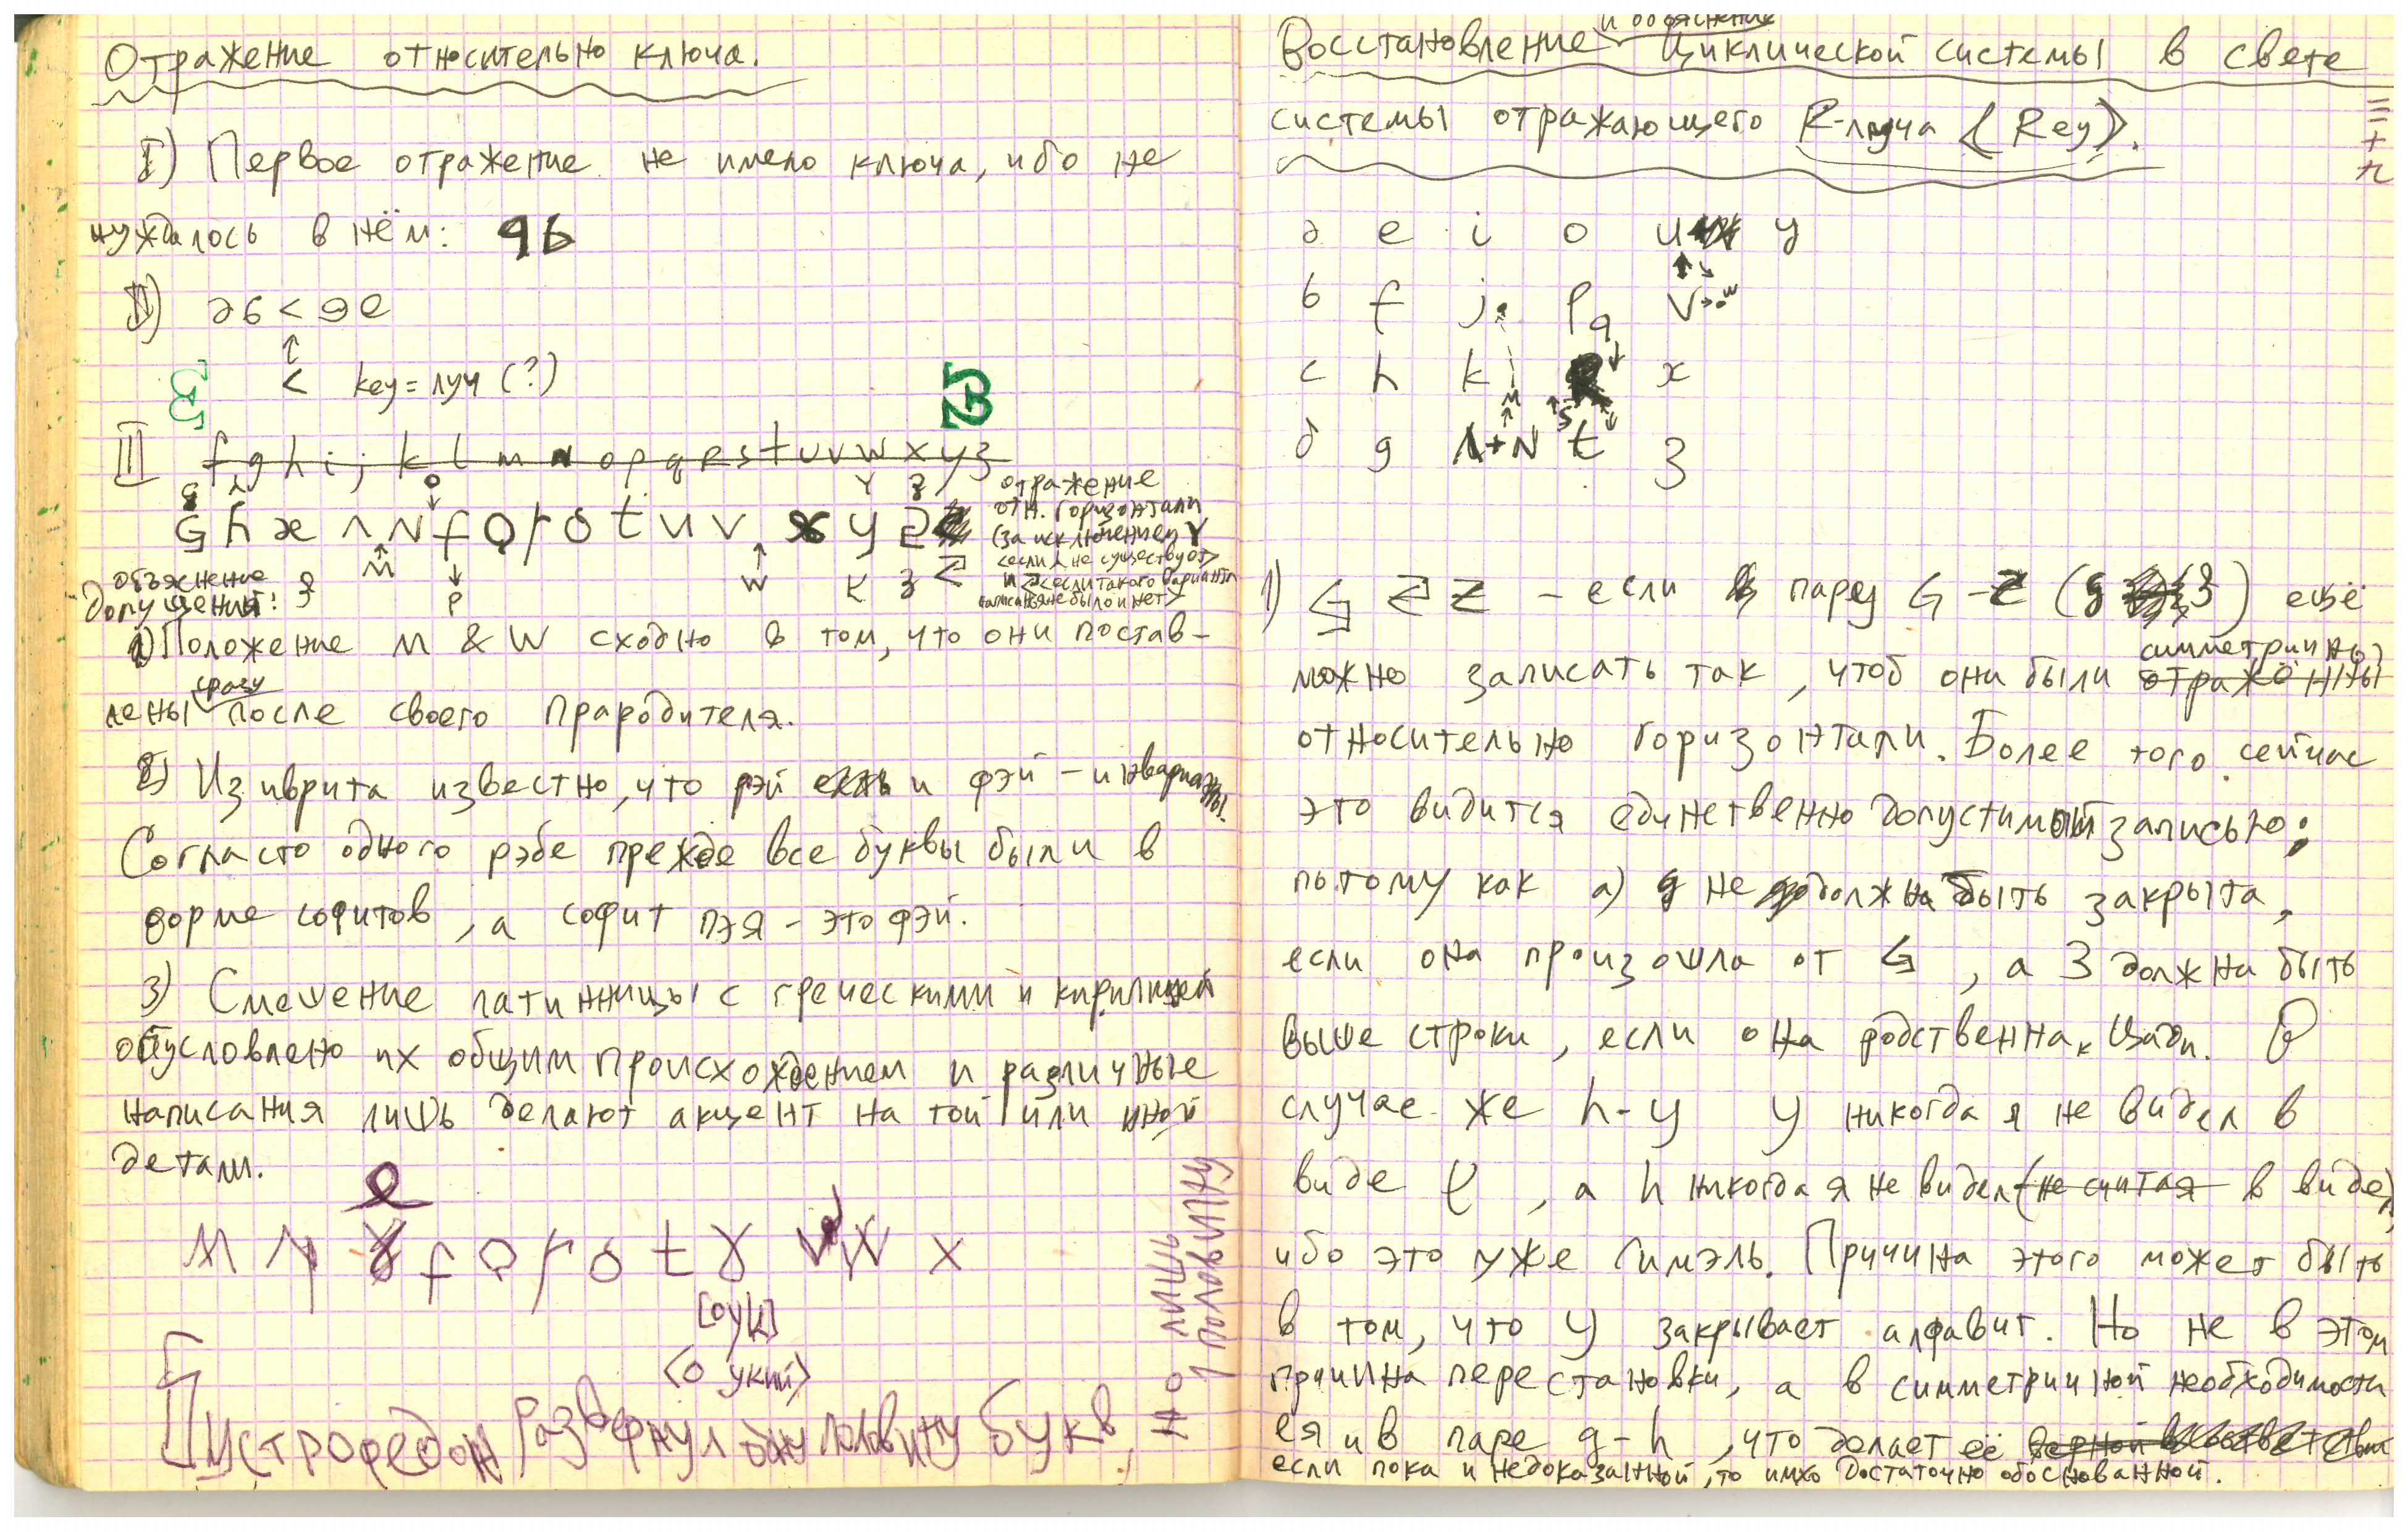 Отражение относительно ключа.
I) Первое отражение не имело ключа, ибо не
нуждалось в нём: 9б
II) дб < 9е
<
key = луч (?)
III f g h i j k l m n o p q R s t u v w x y з
отражение
отн. горизонтали
(за исключением Y
объяснение
допущения:
1) Положение M & W сходно в том, что они постав-
лены сразу после своего прародителя.
2) Из иврита известно, что пэй и фэй – инварианты.
Согласто одного рэбе прежде все буквы были в
форме софитов, а софит пэя – это фэй.
3) Смешение латинницы с греческими и кирилицей
обусловлено их общим происхождением и различные
написания лишь делают акцент на той или иной
детали.
[оук]
(о укий)
развернул одну половину букв,
но лишь
1 половину
Восстановление и объяснение циклической системы в свете
системы отражающего R-луча <Rey>.
д e i o u y
б f j p q v w
c h k R x
M S
д g Λ+N t З
1) – если в пару G – Z ещё
можно записать так, чтоб они были симметричны
относительно горизонтали. Более того сейчас
это видится единственно допустимой записью;
потому как а) g не должна быть закрыта,
если она произошла от G, а З должна быть
выше строки, если она родственна к цади. В
случае же h-y y никогда я не видел в
виде , а h никогда я не видел (не считая в виде),
ибо это уже Гимэль. Причина этого может быть
в том, что y закрывает алфавит. Но не в этом
причина перестановки, а в симметричной необходимости
ея и в паре g-h, что делает её
если пока и недоказанной, то имхо достаточно обоснованной.